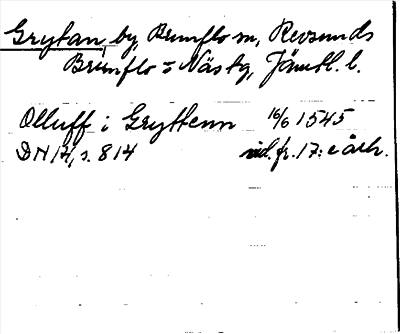 Grytan, by, Brunflo sn, Revsunds
Brunflo o Näs tg, Jämtl. l.
Olluff i Gryttenn 16/6 1545
DN 14, s. 814 vid. fr. 17:e årh.